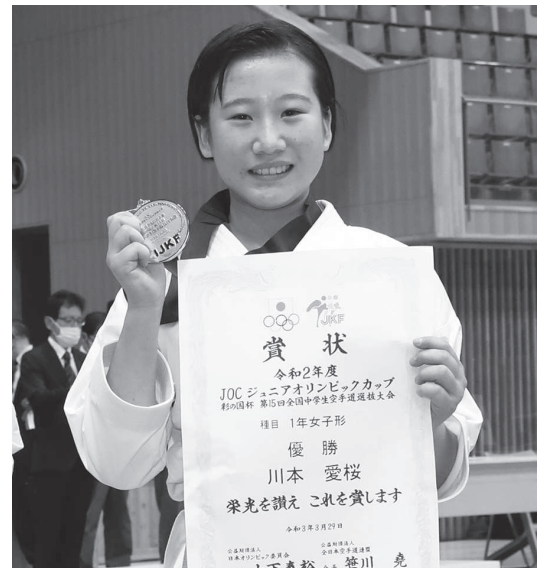 JKF
JKF
賞状
令和2年度
JOCジュニアオリンピックカップ
彩の国杯 第15回全国中学生空手道選抜大会
種目 1年女子形
優勝
川本 愛桜
栄光を讃え これを賞します
令和3年3月29日
公益財団法人 公益財団法人
日本オリンピック委員会 全日本空手道連盟
山下泰裕 会長 笹川 堯